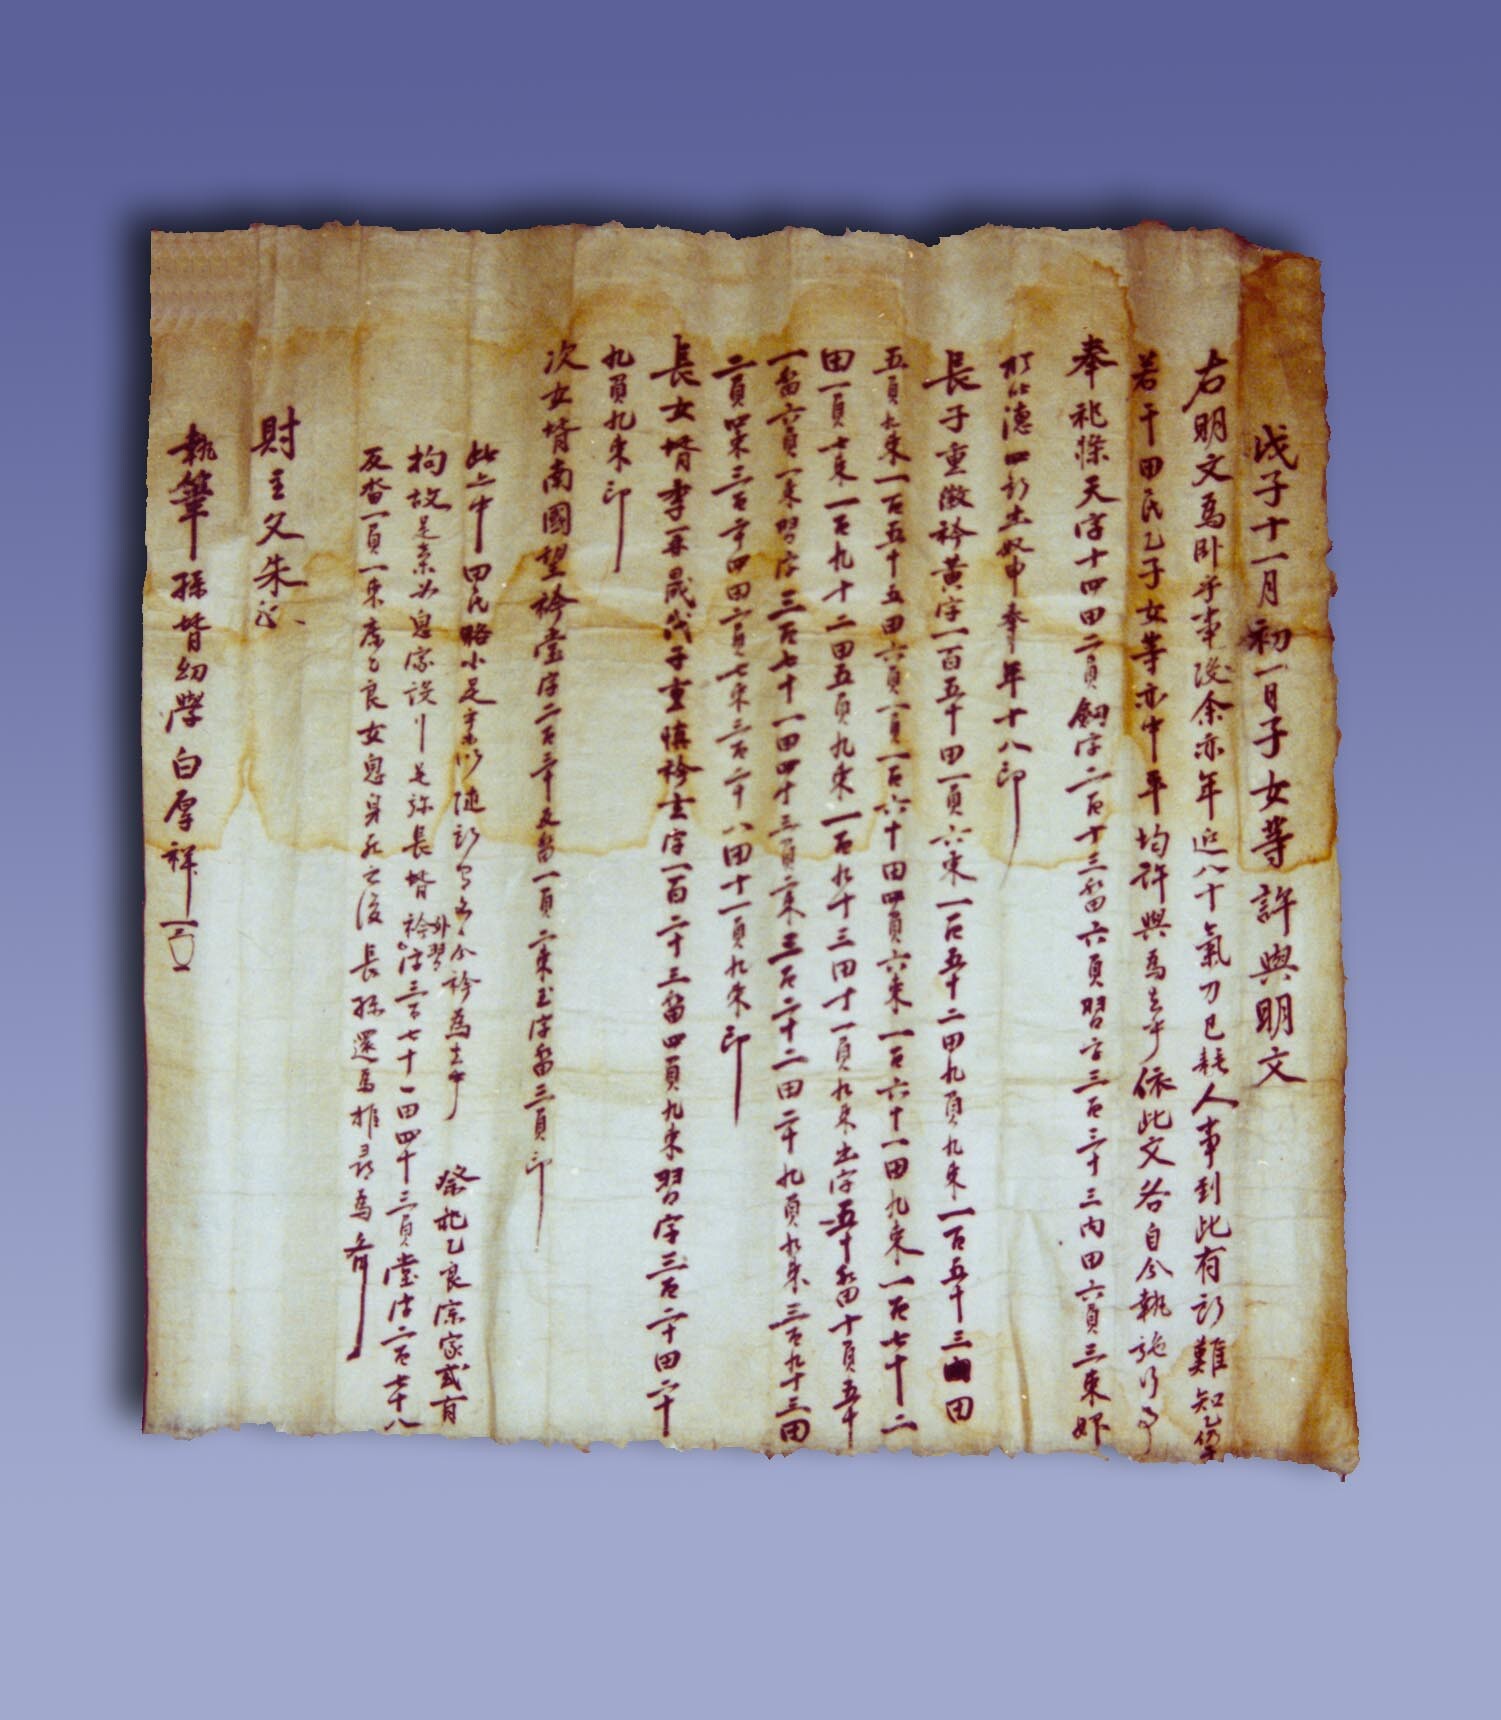 戊子十一月初一日子女等許與明文
右明文爲臥乎事段余亦年迎八十氣力已耗人事到此有所難知乙仍于
若干田民乙子女等亦中平均許與爲去乎依此文各自今執施行事
奉祀條天字十四田二負 字二百十三畓六負習字三百三十三內田六負三束婢
德四所生奴申奉年十八印
長子重徵衿黃字一百五十田一負六束一百五十二田九負九束一百五十三田
五負九束一百五十五田六負一負一百六十田四負六束一百六十一田九束一百七十二
田一負七束一百九十二田五負九束一百九十三田十一負九束出字五十畓田十負五十
一畓六負一束習字三百七十一田四十三負二束三百二十二田二十九負九束三百九十三田
二負四束三百二十四田六負七束三百二十八田十一負九束印
長女壻李 晟代子重 衿玄字一百二十三畓四負九束習字三百二十田二十
九負九束印
次女壻南國望衿堂字二百二十五畓一負二束玉字畓三負印
此亦中田民略小是乎所隨所有各各分衿爲去乎祭祀乙良宗家或有
拘故是 必 家設行是 長壻衿外習字三百七十一田四十三負堂字二百七十八
反畓一負一束庶乙良女息身死之後長孫還爲推尋爲齊
財主父朱
執筆孫壻幼學白厚祥